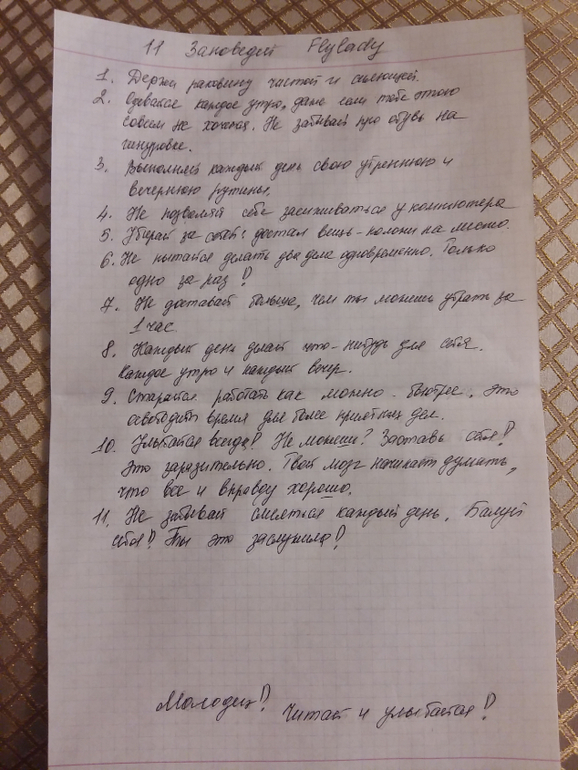 11 Заповедей Flylady
1. Держи раковину чистой и сияющей.
2. Одевайся каждое утро, даже если тебе этого
совсем не хочется. Не забывай про обувь на
шнуровке.
3. Выполняй каждый день свою утреннюю и
вечернюю рутины.
4. Не позволяй себе засиживаться у компьютера
5. Убирай за собой: достал вещь - положи на место.
6. Не пытайся делать два дела одновременно. Только
одно за раз!
7. Не доставай больше, чем ты можешь убрать за
1 час
8. Каждый день делай что-нибудь для себя.
Каждое утро и каждый вечер.
9. Старайся работать как можно быстрее. Это
освободить время для более приятных дел.
10. Улыбайся всегда! Не можешь? Заставь себя!
Это заразительно. Твой мозг начинает думать,
что все и вправду хорошо.
11. Не забывай смеяться каждый день. Балуй
себя! Ты это заслужила!
Молодец! Читай и улыбайся!